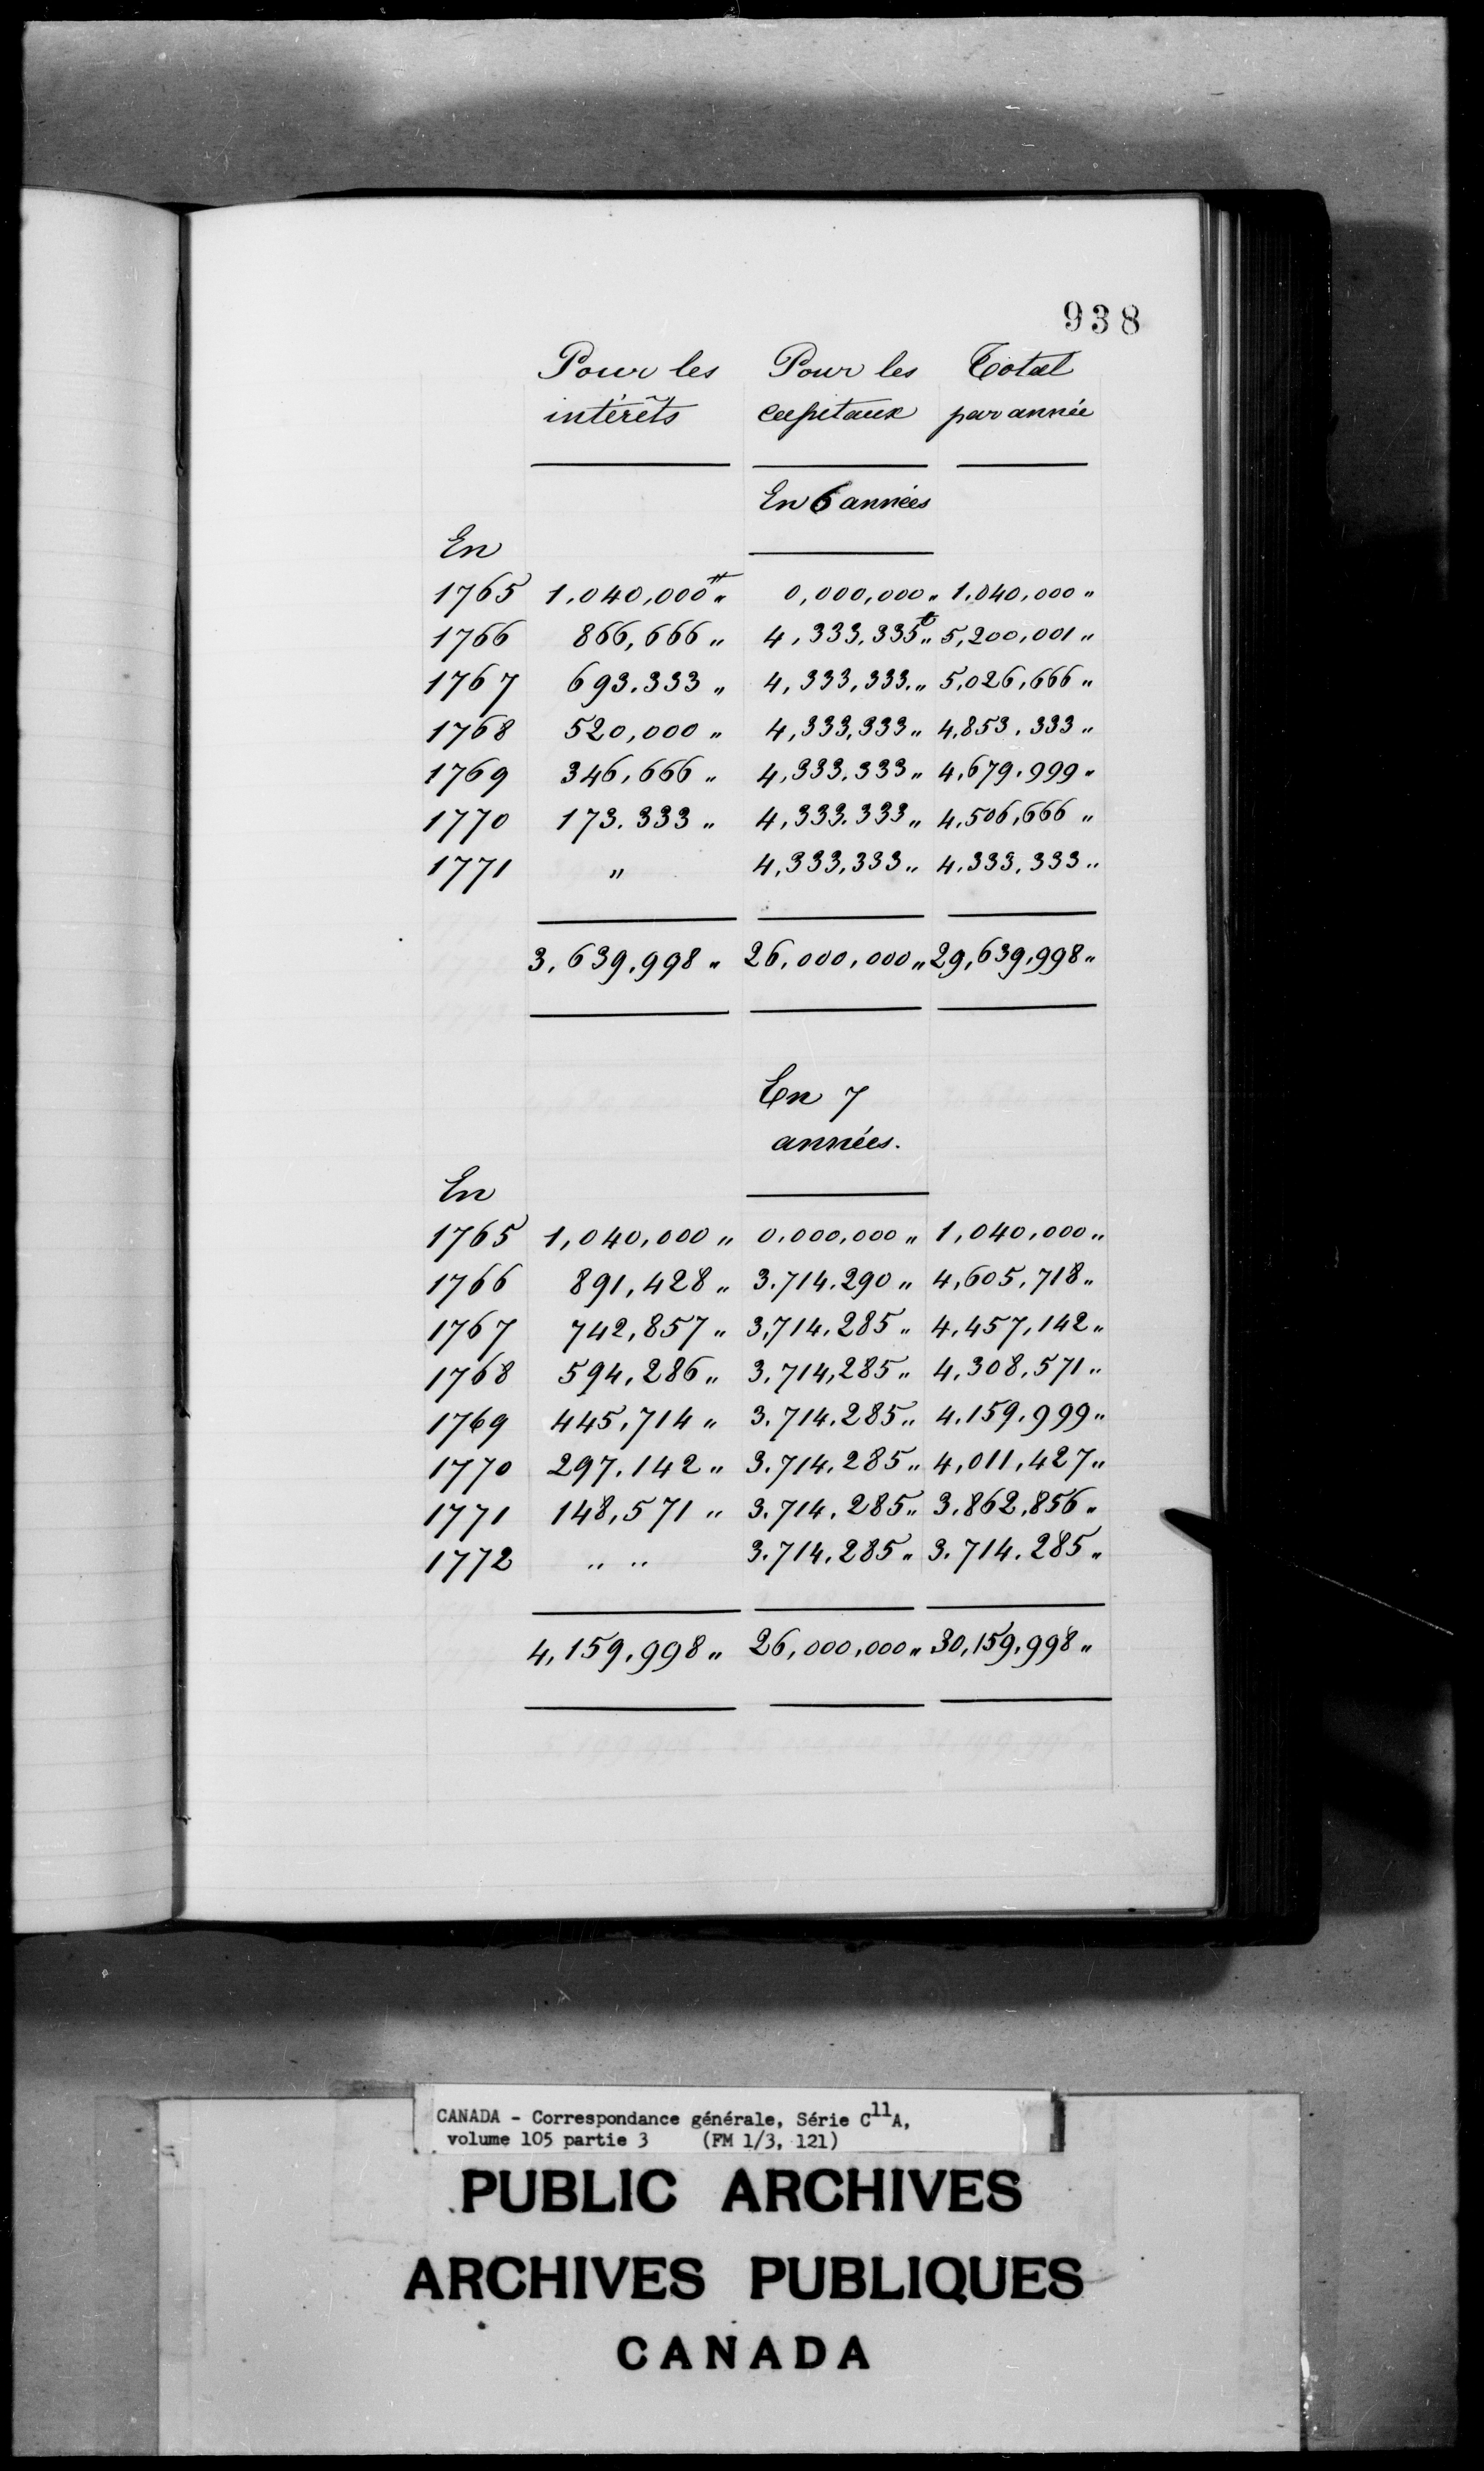 938
Pour les Pour les Total
intérêts capitaux par année
En 6 années
En
1765 1,040,000 ₶ „ 0,000,000 „ 1,040,000 „
1766 866,666 „ 4,333,335 ₶ „ 5,200,001 „
1767 693.333 „ 4,333,333. „ 5,026,666 „
1768 520,000 „ 4,333,333 „ 4,853.333 „
1769 346,666 „ 4,333.333 „ 4,679.999 „
1770 173.333 „ 4,333.333 „ 4,506,666 „
1771 „ 4,333,333 „ 4.333.333 „
3,639,998 „ 26,000,000 „ 29,639,998 „
En 7
années.
En
1765 1,040,000 „ 0.000,000 „ 1,040,000 „
1766 891,428 „ 3.714.290 „ 4,605,718 „
1767 742,857 „ 3,714,285 „ 4,457,142 „
1768 594,286 „ 3,714,285 „ 4,308,571 „
1769 445,714 „ 3.714.285 „ 4.159.999 „
1770 297.142 „ 3.714.285 „ 4,011,427 „
1771 148,571 „ 3.714.285 „ 3.862,856 „
1772 „ „ 3.714.285 „ 3.714.285 „
4,159,998 „ 26,000,000 „ 30,159,998 „
CANADA - Correspondance générale, Série C11A,
volume 105 partie 3 (FM 1/3, 121)
PUBLIC ARCHIVES
ARCHIVES PUBLIQUES
CANADA